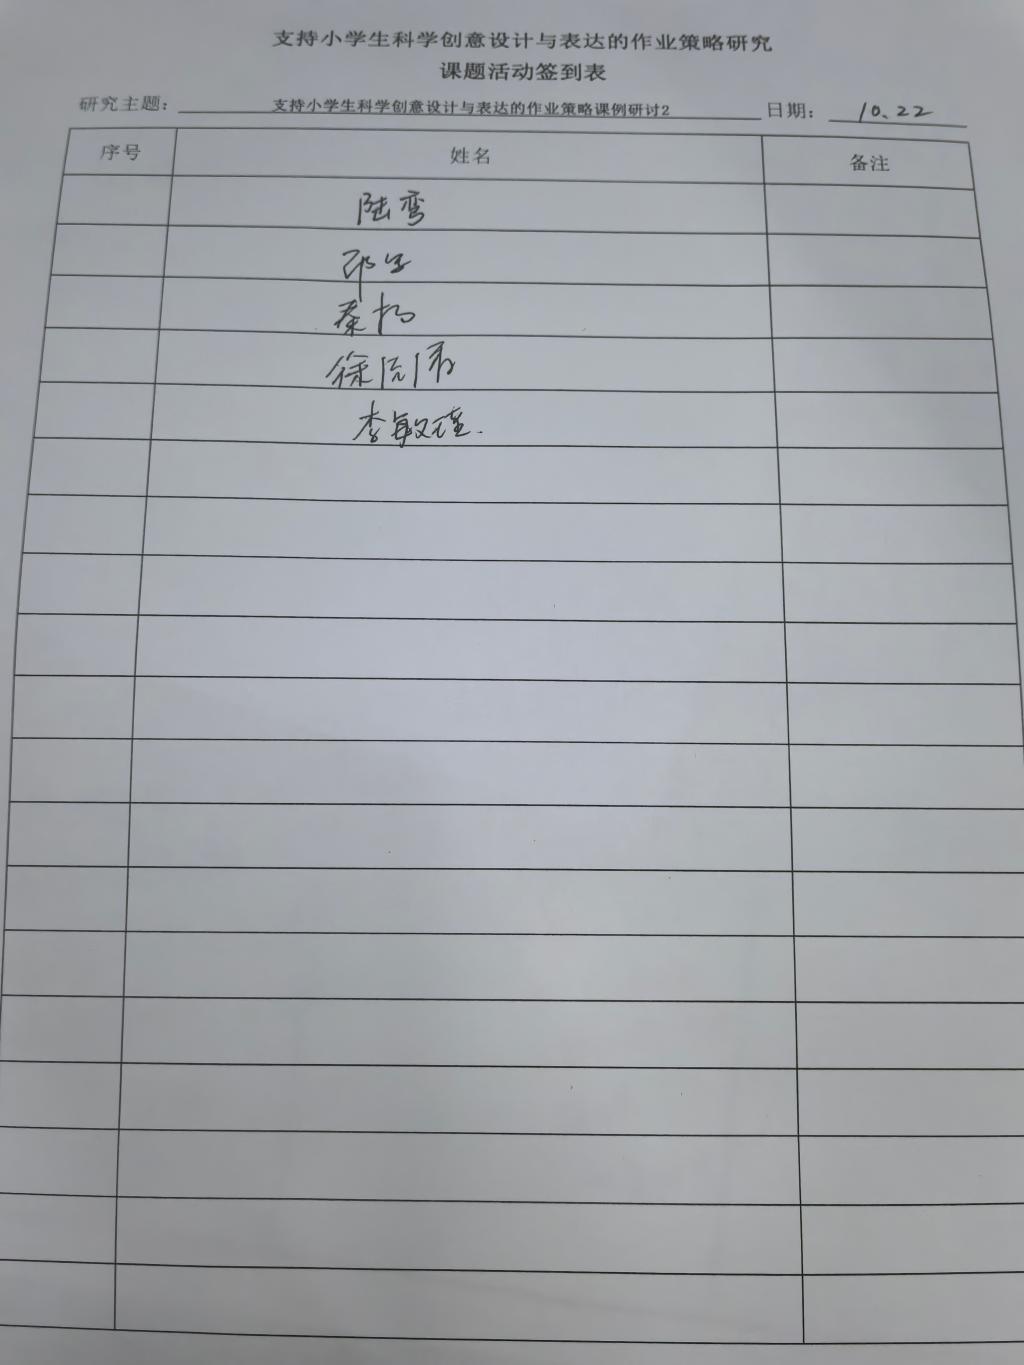 支持小学生科学创意设计与表达的作业策略研究
课题活动签到表
研究主题： 支持小学生科学创意设计与表达的作业策略课例研讨2 日期： 10.22
序号 姓名 备注
陆弯
秦杨
李敏瑾.